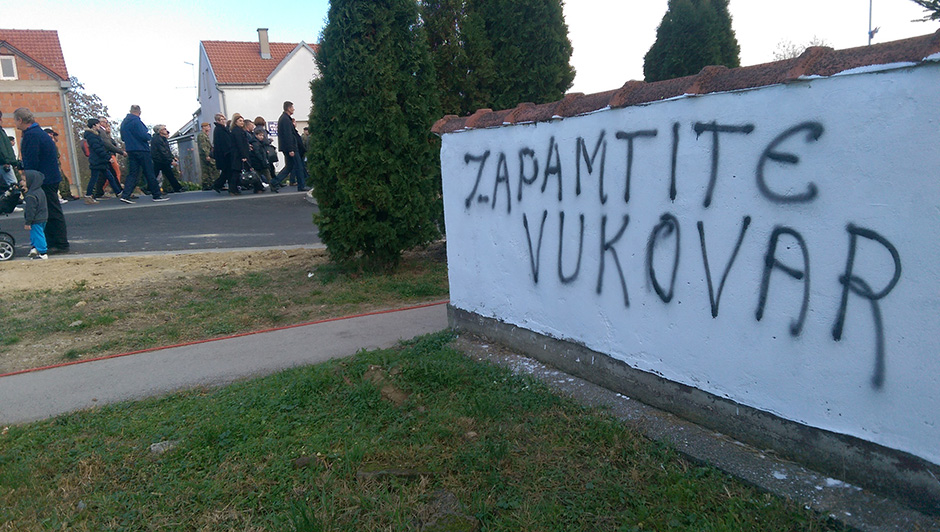 ZAPAMTITE
VUKOVAR